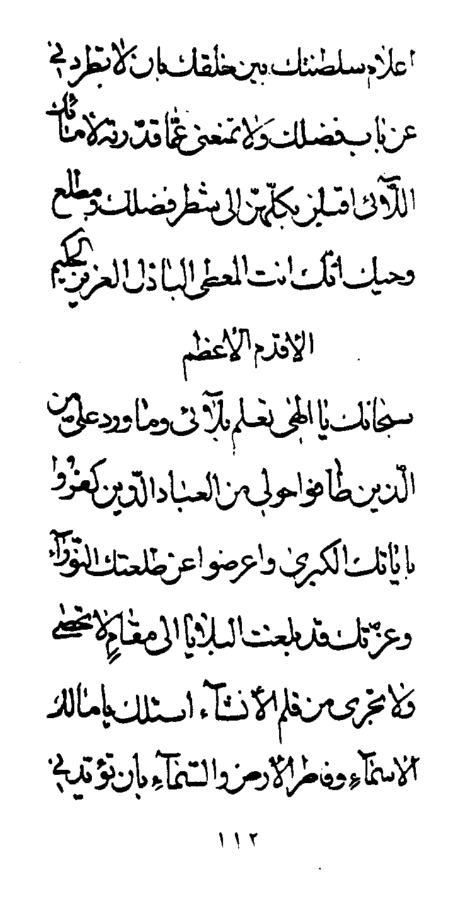 اعلام سلطنتك بين خلقك بان لا تطردني
عن باب فضلك ولا تمنعني عمّا قدّرته لامائك
اللّآئى اقبلن بكلّهنّ الى شطر فضلك و مطلع
وحيك انّك انت المعطى الباذل العزيز الحكيم
الاقدم الاعظم
سبحانك يا الهى تعلم بلآئى وما ورد علىّ من
الّذين طافوا حولى من العباد الّذين كفروا
باياتك الكبرى واعرضوا عن طلعتك النّورآء
وعزّتك قد بلغت البلايا الى مقامٍ لا تحصى
ولا تجرى من قلم الانشآء اسئلك يا مالك
الاسمآءِ وفاطر الارض والسّمآءِ بان تؤيّدنى
١١٢